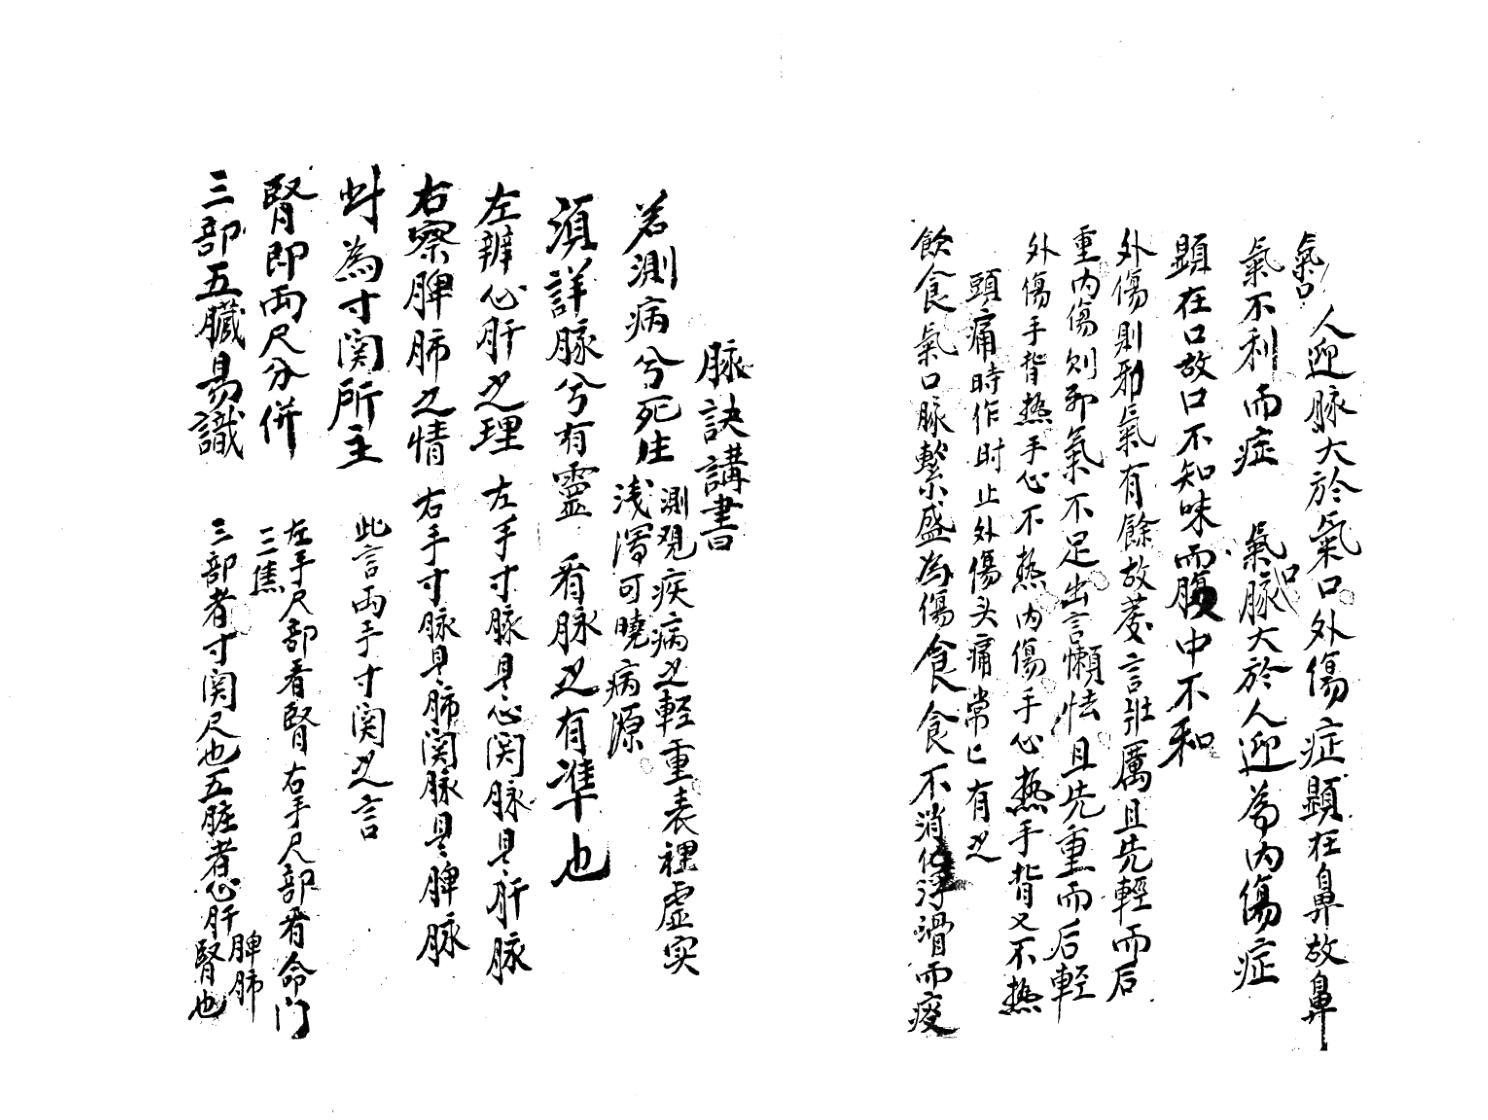 氣口人迎脉大於氣口外傷症顕在鼻故鼻
氣不利而症 氣口脉大於人迎為内傷症
顕在口故口不知味而腹中不和
外傷則邪氣有餘故發言壯厲且先輕而后
重内傷則邪氣不足出言懶怯且先重而后輕
外傷手背热手心不热内傷手心热手背又不热
頭痛時作时止外傷头痛常已有之
飲食氣口脉繫盛為傷食食不消化浮滑而疫
脉訣講書
若測病兮死生 測覌疾病之輕重表裡虚实
浅深可曉病源
須詳脉兮有靈 看脉之有準也
左辨心肝之理 左手寸脉是心関脉是肝脉
右察脾肺之情 右手寸脉是肺関脉是脾脉
此為寸関所主 此言両手寸関之言
腎即両尺分併 左手尺部看腎右手尺部看命门
三焦
三部五臟易識 三部者寸関尺也五脏者心肝脾肺腎也